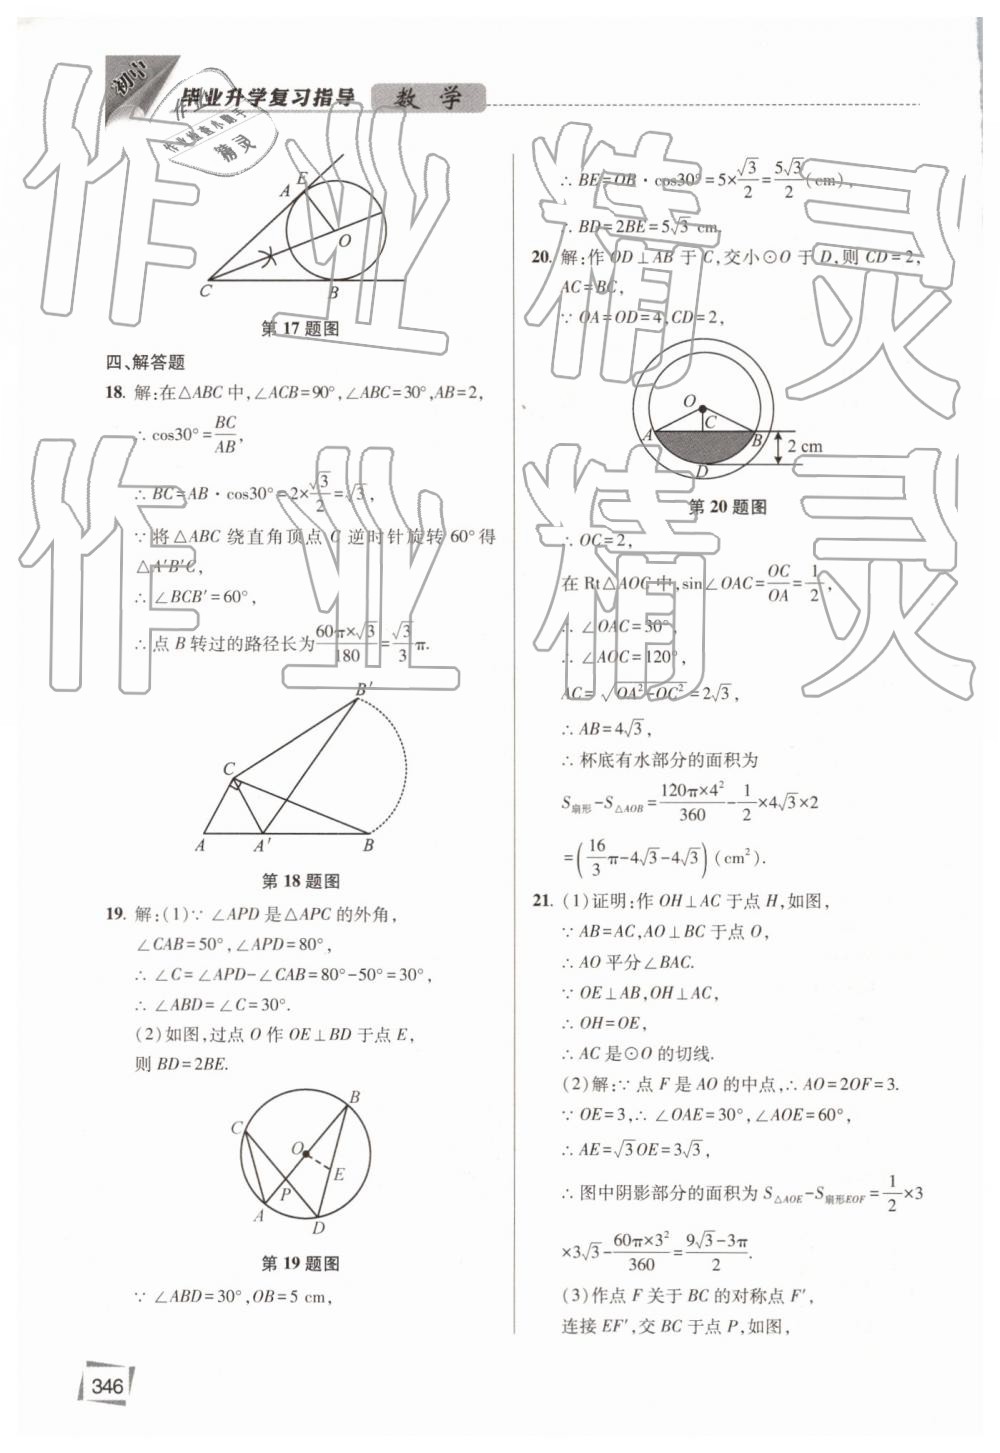 初中
毕业升学复习指导 数学
作业
作业检查小助手
精灵
作业精灵
E
A
O
C
B
第17题图
四、解答题
18. 解:在△ABC中,∠ACB=90°,∠ABC=30°,AB=2,
∴ cos30°=BC/AB,
∴ BC=AB·cos30°=2×√3/2=√3,
∵ 将△ABC 绕直角顶点 C 逆时针旋转 60°得
△A′B′C,
∴ ∠BCB′=60°,
∴ 点 B 转过的路径长为60π×√3/180=√3/3π.
B′
C
A A′ B
第18题图
19. 解:(1)∵ ∠APD 是△APC 的外角,
∠CAB=50°,∠APD=80°,
∴ ∠C=∠APD-∠CAB=80°-50°=30°,
∴ ∠ABD=∠C=30°.
(2)如图,过点 O 作 OE⊥BD 于点 E,
则 BD=2BE.
B
C
O
E
P
A
D
第19题图
∵ ∠ABD=30°,OB=5 cm,
346
∴ BE=OB·cos30°=5×√3/2=5√3/2(cm),
∴ BD=2BE=5√3 cm.
20. 解:作 OD⊥AB 于 C,交小⊙O 于 D,则 CD=2,
AC=BC,
∵ OA=OD=4,CD=2,
O
C
A B
2 cm
D
第20题图
∴ OC=2,
在 Rt△AOC 中,sin∠OAC=OC/OA=1/2,
∴ ∠OAC=30°,
∴ ∠AOC=120°,
AC=√(OA²-OC²)=2√3,
∴ AB=4√3,
∴ 杯底有水部分的面积为
S扇形-S△AOB=120π×4²/360-1/2×4√3×2
=(16/3π-4√3-4√3)(cm²).
21. (1)证明:作 OH⊥AC 于点 H,如图,
∵ AB=AC,AO⊥BC 于点 O,
∴ AO 平分∠BAC.
∵ OE⊥AB,OH⊥AC,
∴ OH=OE,
∴ AC 是⊙O 的切线.
(2)解:∵ 点 F 是 AO 的中点,∴ AO=2OF=3.
∵ OE=3,∴ ∠OAE=30°,∠AOE=60°,
∴ AE=√3OE=3√3,
∴ 图中阴影部分的面积为 S△AOE-S扇形EOF=1/2×3
×3√3-60π×3²/360=(9√3-3π)/2.
(3)作点 F 关于 BC 的对称点 F′,
连接 EF′,交 BC 于点 P,如图,